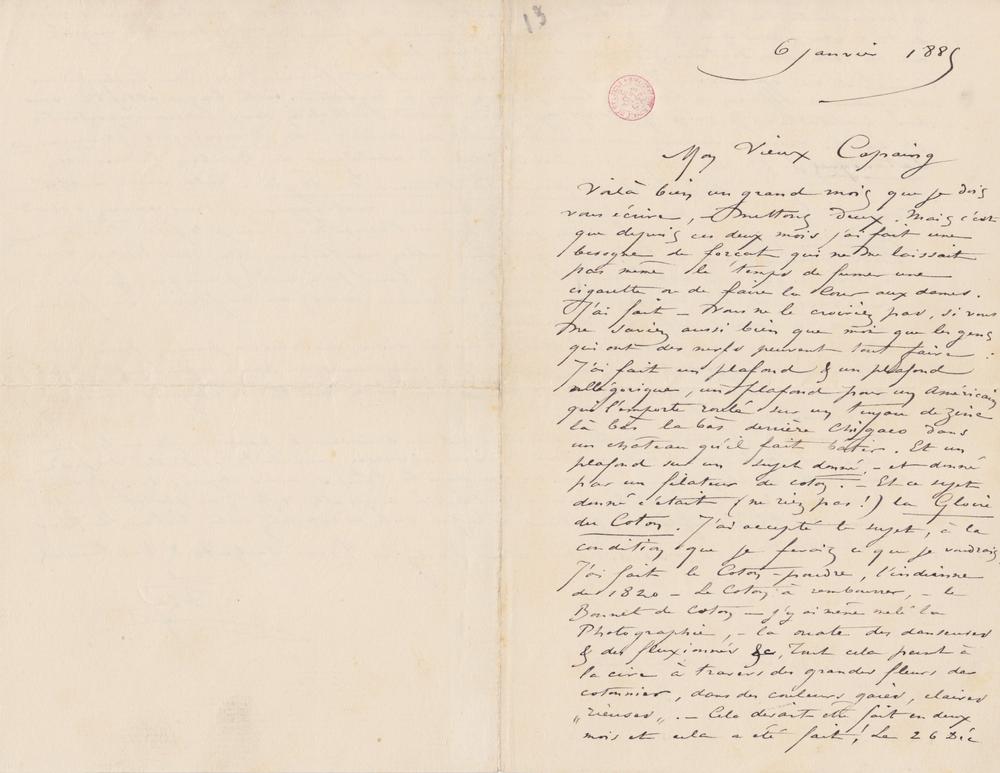 13
6 janvier 1885
Mon Vieux Copaing
Voilà bien un grand mois que je dois
vous écrire, – Mettons Deux. Mais c'est
que depuis ces deux mois j'ai fait une
besogne de forçat qui ne me laissait
pas même le temps de fumer une
cigarette ou de faire la Cour aux dames.
J'ai fait – vous ne le croiriez pas, si vous
ne saviez aussi bien que moi que les gens
qui ont des nerfs peuvent tout faire :
J'ai fait un plafond & un plafond
allégorique, un plafond pour un Américain
qui l'emporte roulé sur un tuyau de zinc
là bas la bas derrière Chigaco dans
un chateau qu'il fait batir. Et un
plafond sur un sujet donné, – et donné
par un filateur de coton. – Et ce sujet
donné c'était (ne riez pas !) la Gloire
du Coton. J'ai accepté le sujet, à la
condition que je ferais ce que je voudrais,
J'ai fait le Coton-poudre, l'indienne
de 1820 – Le Coton à rembourrer, – le
Bonnet de Coton – j'y ai même mêlé la
Photographie, – la ouate des danseuses
& des fluxionnés &c, Tout cela peint à
la cire à travers des grandes fleurs de
cotonnier, dans des couleurs gaies, claires
„rieuses„. – Cela devait être fait en deux
mois et cela a été fait ! Le 26 Déc